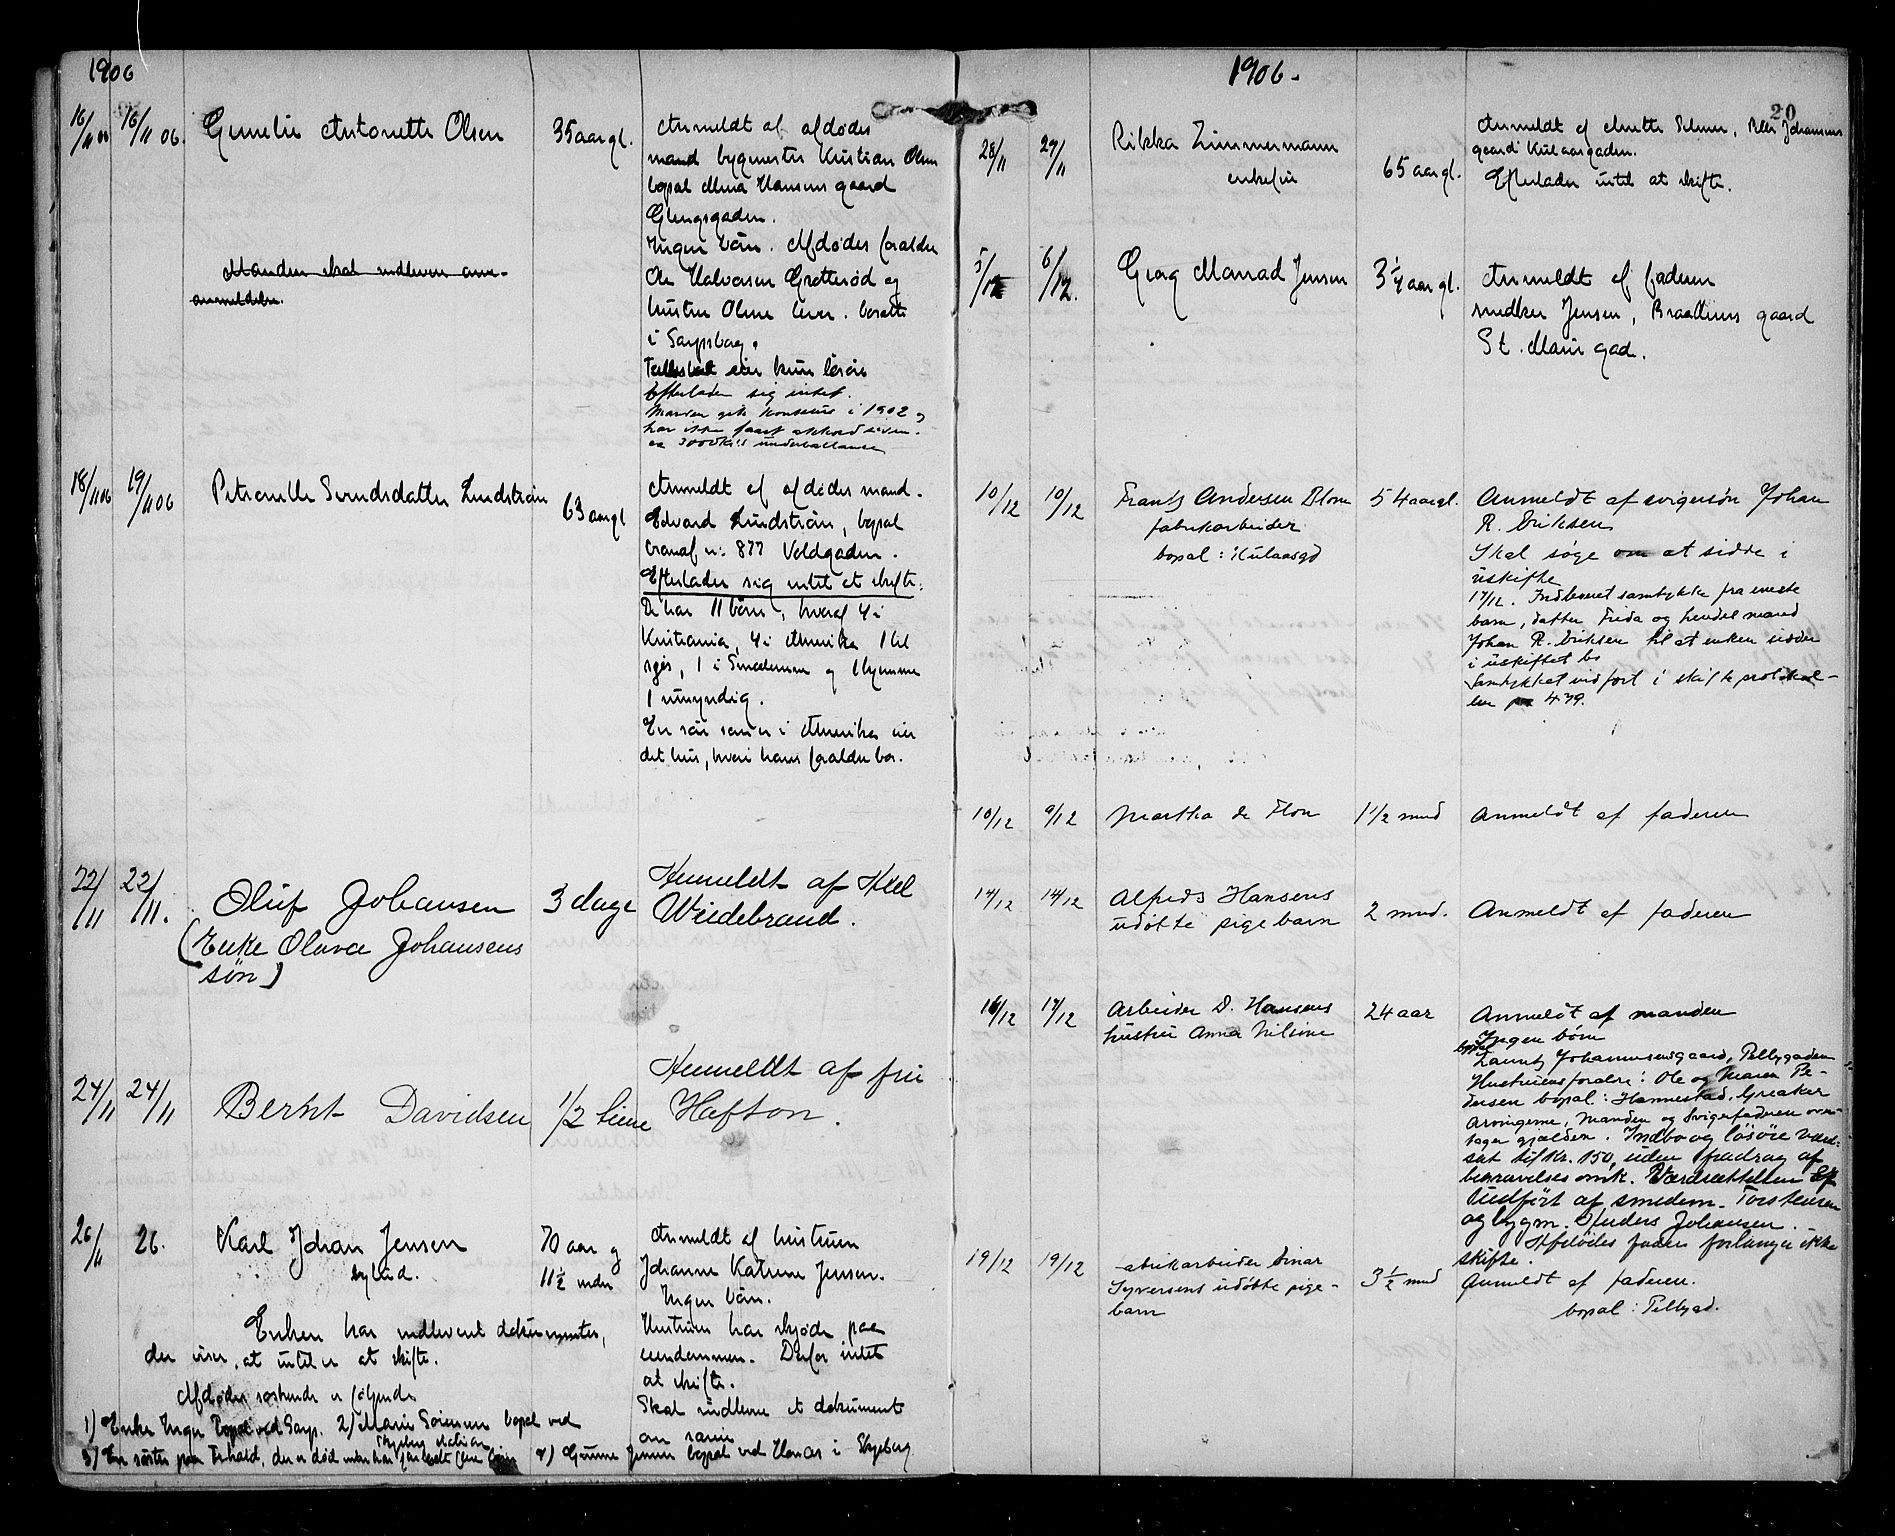 1906
16/11 06 16/11 06. Gunelie Antonette Olsen 35 aar gl. Anmeldt af afdødes
mand bygmester Kristian Olsen
bopal Mina Hansens gaard
Glengsgaden.
Ingen börn. Afdødes foraldre
Ole Halvorsen Grøtterød og
hustru Oline lever. bosatte
i Sarpsborg.
Manden skal indlevere
anmeldelse.
eier kun lösöre
Efterlader sig intet.
Manden gik konkurs i 1902 og
har ikke faaet akkord siden.
ca 3000 kr.s underballance
18/11 06 19/11 06 Petronelle Svendsdatter Lundström 63 aar gl Anmeldt af afdødes mand.
Edvard Lundström, bopal
n: 877 Voldgaden.
Efterlader sig intet at skifte.
De har 11 börn, hvoraf 4 i
Kristiania, 4 i Amerika 1 til
sjøs, 1 i Smaalenene og 1 hjemme
1 umyndig.
En sön som er i Amerika eier
det hus, hvori hans foraldre bor.
22/11 22/11. Oluf Johansen 3 dage Anmeldt af
Wiedebrand.
(Enke Olava Johansens
søn)
24/11 24/11 Bernt Davidsen 1/2 time Anmeldt af fru
Hafton.
26/11 26. Karl Johan Jensen 70 aar og 11 1/2 mdr Anmeldt af hustruen
Johanne Katrine Jensen.
Ingen börn.
Enken har indleveret dokumenter,
der viser, at intet er at skifte.
Hustruen har skjøde paa
eiendommen. Derfor intet
at skifte.
Skal indlevere et dokument
om samme
Afdødes søskende er følgende
1) Enke Inger bopal ved Sarp. 2) Marie Sörensen bopal ved
Skjeberg station
3) En søster paa Tithald, der er død men har efterladt flere börn 4) Gunne Jensen bopal ved Hanas i Skjeberg
1906.
20
28/11 27/11 Rikka Zimmermann
enkefru
65 aar gl. Anmeldt af Anette Johansens
gaard Kulaasgaden.
Efterlader intet at skifte.
5/12 6/12. Georg Manrad Jensen 3 1/4 aar gl. Anmeldt af faderen
snedker Jensen, Braathens gaard
St. Marie gade.
10/12 10/12 Frantz Andersen Blom 54 aar gl. Anmeldt af svigersøn Johan
R. Eriksen
fabrikarbeider
bopal: Kulaasgd
Skal søge om at sidde i
uskifte
17/12. Indleveret samtykke fra eneste
barn, datter Frida og hendes mand
Johan R. Eriksen til at enken sidder
i uskiftet bo
Samtykket indført i skifteprotokol-
len pa 479.
10/12 9/12 Martha de Flon 1 1/2 mnd Anmeldt af faderen
14/12 14/12 Alfreds Hansens
udøbte pigebarn
2 mnd. Anmeldt af faderen
16/12 17/12 Arbeider D. Hansens
hustru Anna Nilsine
24 aar Anmeldt af manden
Ingen børn
bopal Lauritz Johannessensgaard, Pellygaden
Hustruens foralre: Ole og Maren Pe-
dersen bopal: Hannestad, Greaker
Arvingerne, Manden og Svigerfaderen over-
tager gjælden. Indbo og løsöre værd-
sat til Kr. 150, uden fradrag af
begravelsesomk. Værdsættelsen
Udført af smedem. Torstensen
og bygm. Anders Johansen.
Afdødes fader forlanger ikke
skifte.
19/12 19/12 abrikarbeider Einar
Syversens udöbte pige-
barn
3 1/2 mnd Anmeldt af faderen.
bopal: Pellygd.